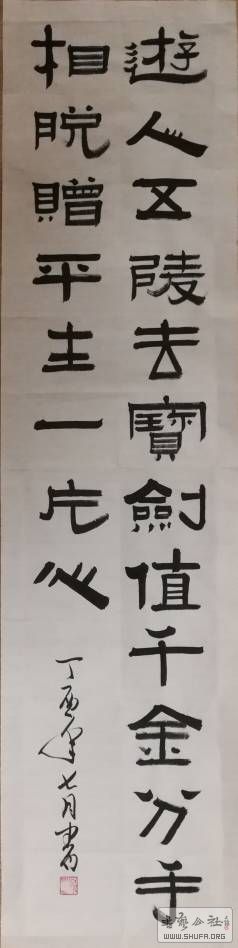 遊人五陵去寶劍值千金分手
相脫贈平生一片心
丁酉年七月書
书艺公社
WWW.SHUFA.ORG